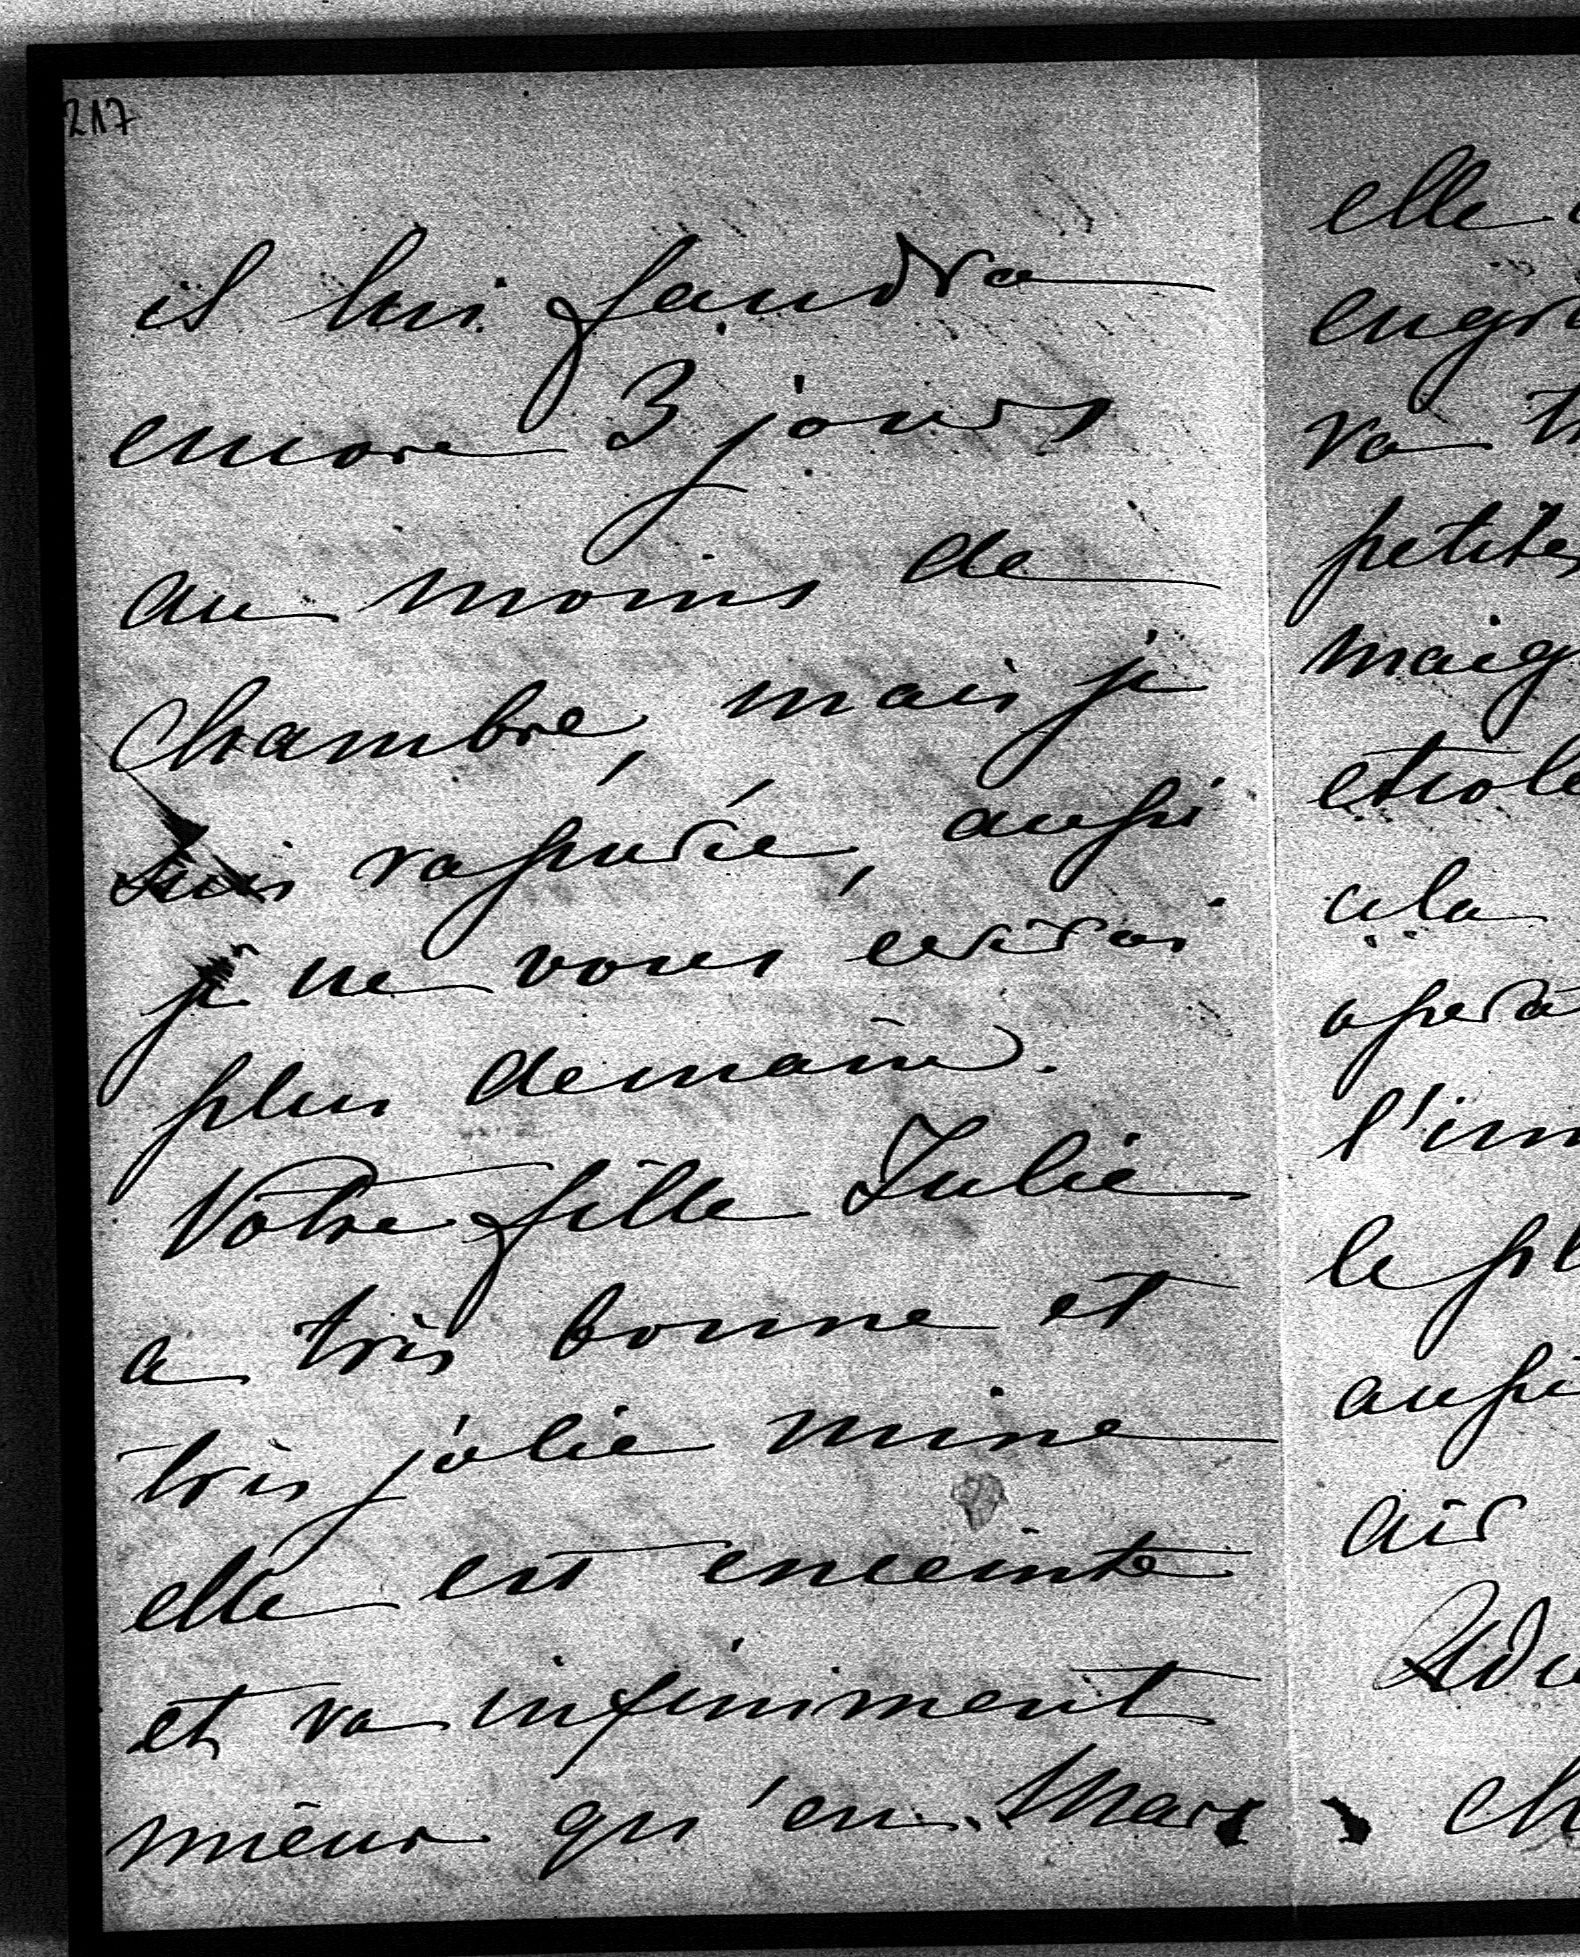 217
il lui faudra
encore 3 jours
au moins de
chambre, mais je
suis rassurée, aussi
je ne vous écrirai
plus demain.
Votre fille Julie
a très bonne et
très jolie mine
elle est enceinte
et va infiniment
mieux qu'en Mars
elle
engr
va
petites
maig
etiole
cela
opera
l'im
le pl
aussi
air
Adi